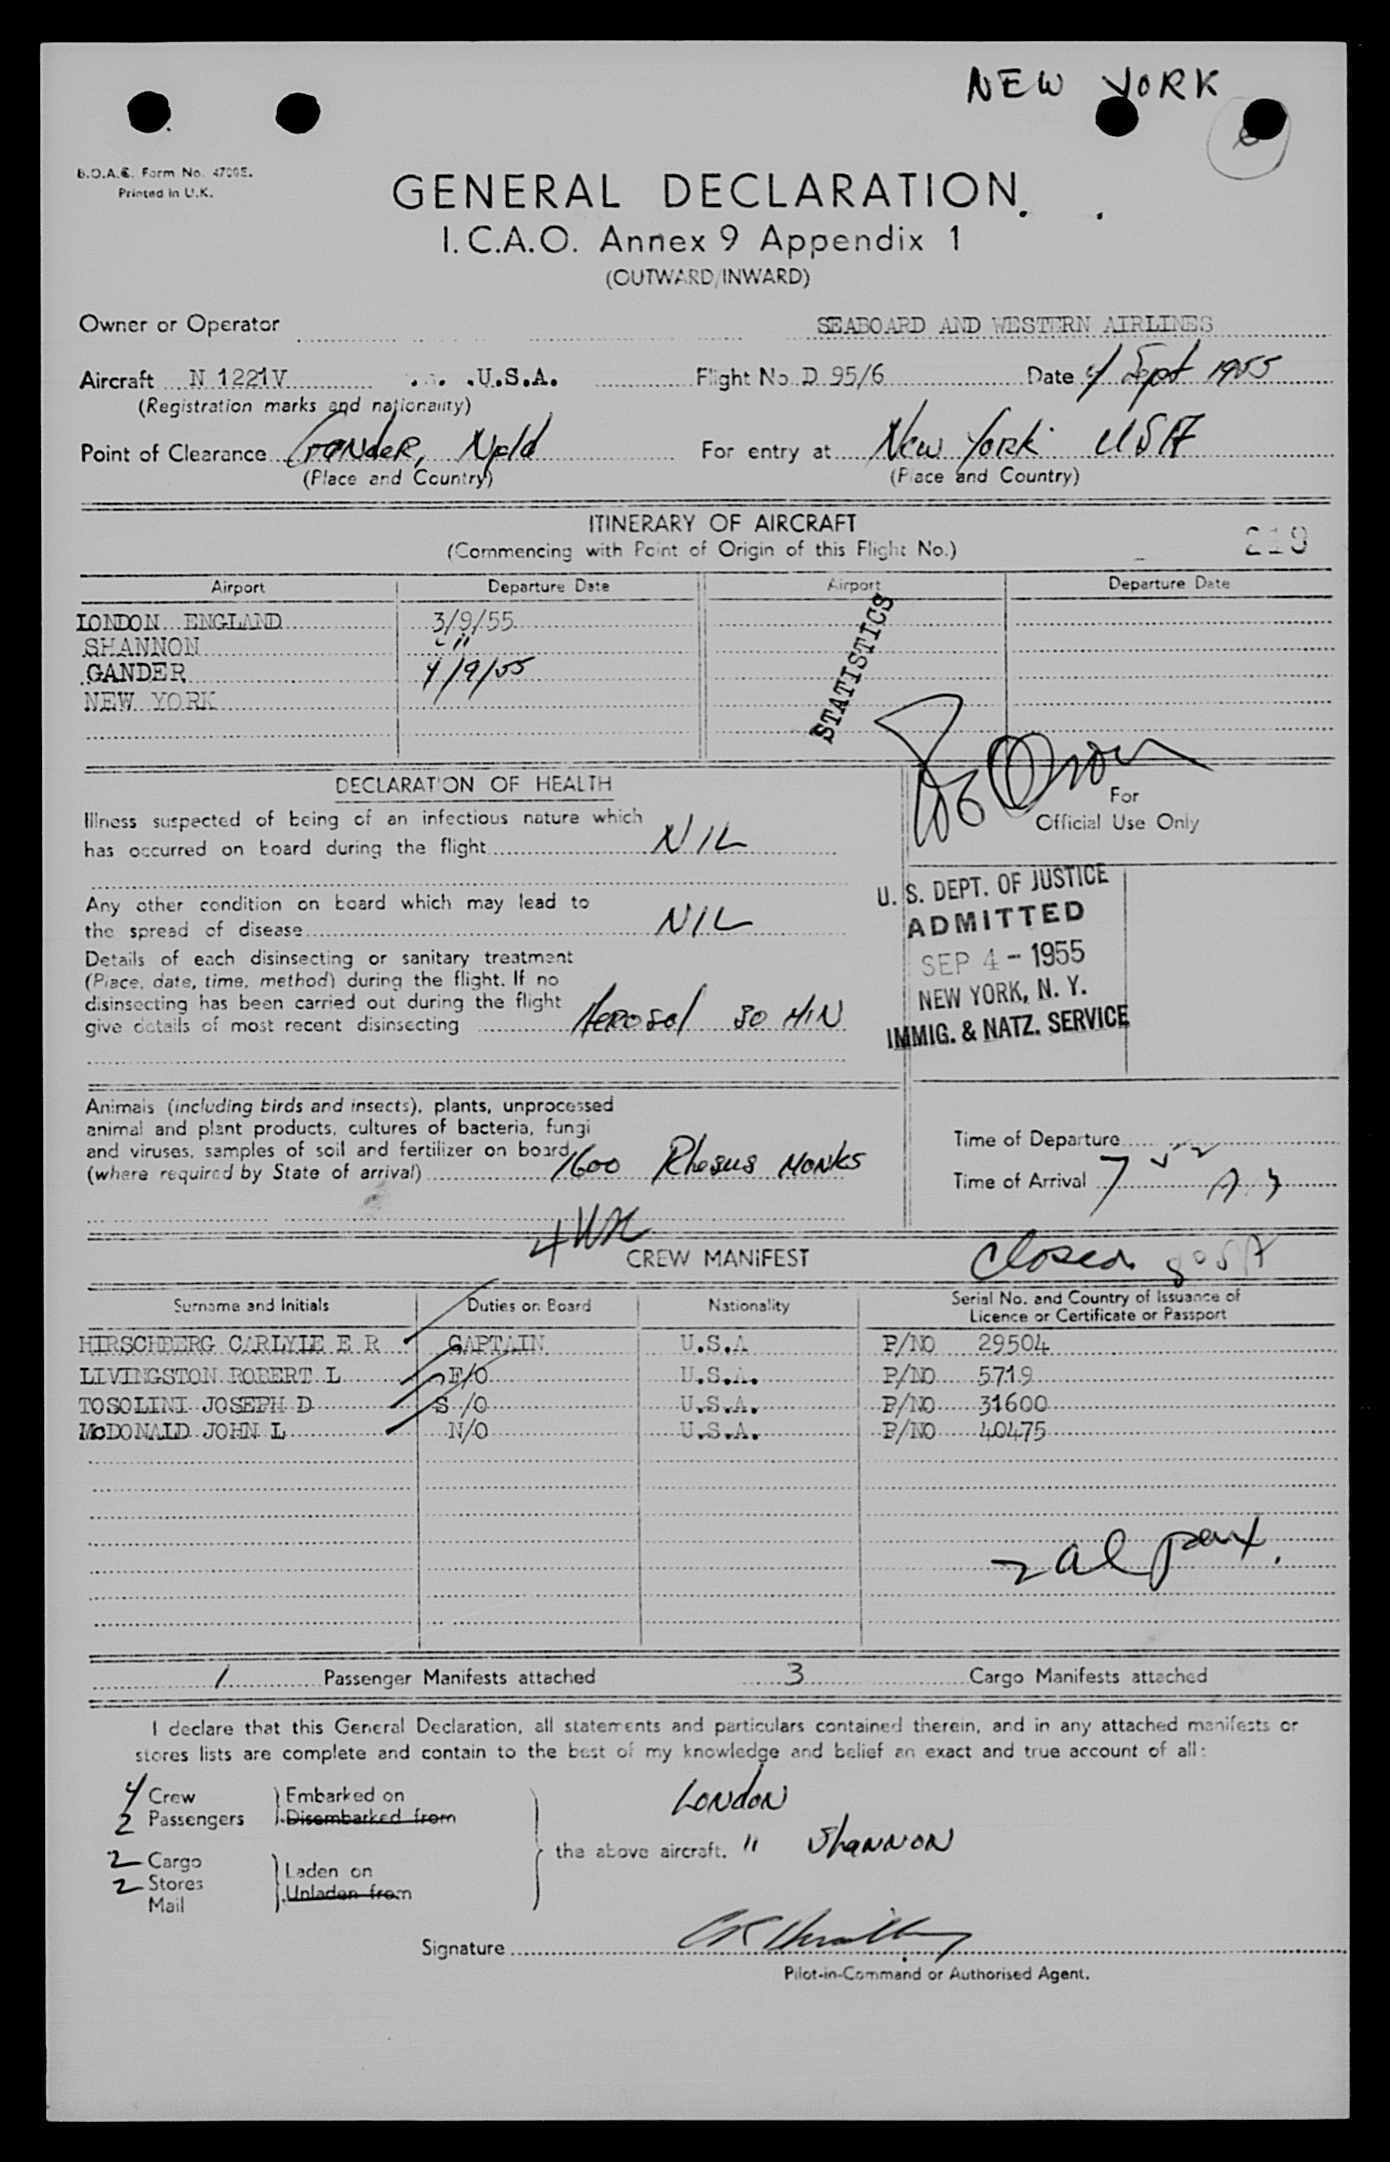 NEW YORK
B.O.A.C. Form No. 4700E.
Printed in U.K.
GENERAL DECLARATION
I.C.A.O. Annex 9 Appendix 1
(OUTWARD/INWARD)
Owner or Operator SEABOARD AND WESTERN AIRLINES
Aircraft N 1221V U.S.A. Flight No D 95/6 Date 4 Sept 1955
(Registration marks and nationality)
Point of Clearance Gander, Nfld For entry at New York USA
(Place and Country) (Place and Country)
ITINERARY OF AIRCRAFT
219
(Commencing with Point of Origin of this Flight No.)
Airport Departure Date Airport Departure Date
LONDON ENGLAND 3/9/55
SHANNON "
GANDER 4/9/55
NEW YORK
STATISTICS
DECLARATION OF HEALTH
For
Official Use Only
Illness suspected of being of an infectious nature which
has occurred on board during the flight NIL
Any other condition on board which may lead to
the spread of disease NIL
Details of each disinsecting or sanitary treatment
(Place, date, time, method) during the flight. If no
disinsecting has been carried out during the flight
give details of most recent disinsecting Aerosol 30 MIN
U. S. DEPT. OF JUSTICE
ADMITTED
SEP 4 - 1955
NEW YORK, N. Y.
IMMIG. & NATZ. SERVICE
Animals (including birds and insects), plants, unprocessed
animal and plant products, cultures of bacteria, fungi
and viruses, samples of soil and fertilizer on board
(where required by State of arrival) 1600 Rhesus Monks
Time of Departure
Time of Arrival 7 52
CREW MANIFEST
Closed
Surname and Initials Duties on Board Nationality Serial No. and Country of Issuance of
Licence or Certificate or Passport
HIRSCHBERG CARLYLE E R CAPTAIN U.S.A P/NO 29504
LIVINGSTON ROBERT L F/O U.S.A. P/NO 5719
TOSOLINI JOSEPH D S /O U.S.A. P/NO 31600
McDONALD JOHN L N/O U.S.A. P/NO 40475
2 al pax.
1 Passenger Manifests attached 3 Cargo Manifests attached
I declare that this General Declaration, all statements and particulars contained therein, and in any attached manifests or
stores lists are complete and contain to the best of my knowledge and belief an exact and true account of all:
4 Crew Embarked on London
2 Passengers Disembarked from
the above aircraft. " Shannon
2 Cargo Laden on
2 Stores Unladen from
Mail
Signature
Pilot-in-Command or Authorised Agent.